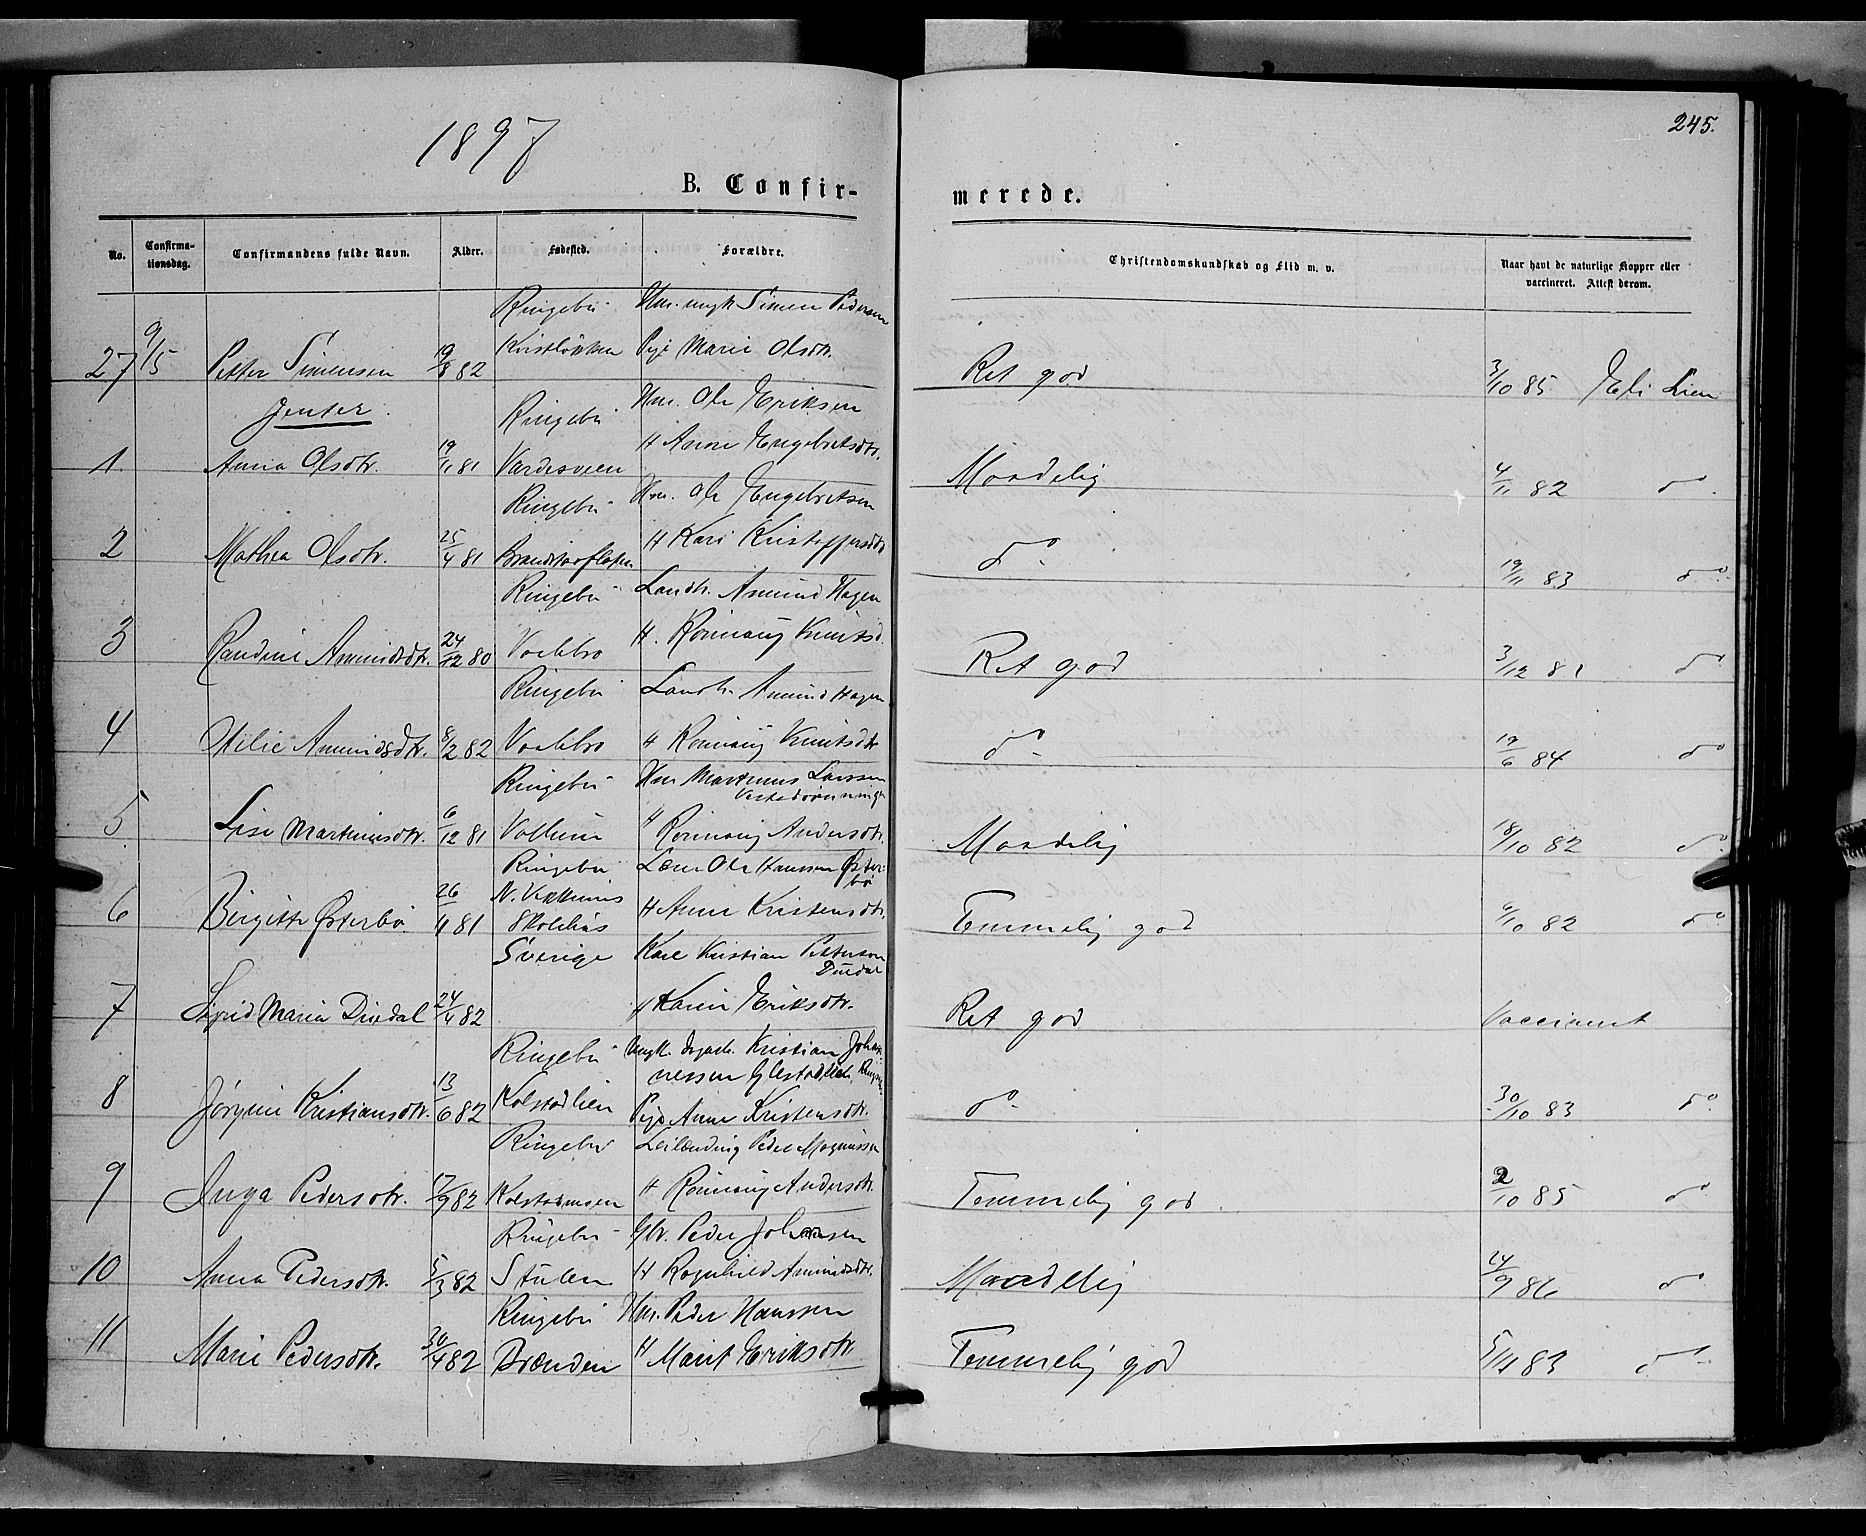 245.
1897
B. Confir-
merede.
No.
Confirma-
tionsdag.
Confirmandens fulde Navn.
Alder.
Fødested.
Forældre.
Christendomskundskab og Flid m. v.
Naar havt de naturlige Kopper eller
vaccineret. Attest derom.
Ringebu Hm. ungk Simen Pedersen
27 9/15 Petter Simensen 19/8 82 Kvistløkken Pige Marie Olsdtr. Ret god 3/10 85 Eli Lien
Jenter. Ringebu Hm. Ole Eriksen
1 Anna Olsdtr. 19/11 81 Vardesveen H Anne Engebretsdtr. Maadelig 4/11 82 do.
Ringebu Hm. Ole Engebretsen
2 Mathea Olsdtr. 25/4 81 H Kari Kristoffersdtr do. 19/11 83 do.
Ringebu Landh. Amund Hagen
3 Randine Amundsdtr. 24/12 80 Vaalebro H. Rønnaug Knutsd. Ret god 3/12 81 do
Ringebu Landh. Amund Hagen
4 Amundsdtr. 8/2 82 Vaalebro H Rønnaug Knutsdtr do. 19/6 84 do
Ringebu Hm Martinus Larssen
5 Lise Martinusdtr. 6/12 81 H Rønnaug Andersdtr. Maadelig 18/10 82 do.
Ringebu Ole Hanssen Øster-
bø
6 Birgitte Østerbø 26/11 81 N.
Skolehus H Anne Kristensdtr. Temmelig god 6/10 82 do
Sverige Karl Kristian Petterson
Duedal
7 Sigrid Maria Duedal 24/4 82 H Karin Eriksdtr. Ret god Vaccineret
Ringebu Ungk. Kristian Johan-
nessen
8 Jørgine Kristiansdtr. 13/6 82 Kolstadlien Pige Anne Kristensdtr. do. 30/10 83 do.
Ringebu Leilænding Peder Magnussen
9 Inga Pedersdtr. 17/9 82 H Rønnaug Andersdtr. Temmelig god. 2/10 85 do
Ringebu Gbr. Peder Johansen
10 Anna Pedersdtr. 5/3 82 Stulen H Ragnhild Amundsdtr. Maadelig 24/9 86 do
Ringebu Hm. Peder Hanssen
11 Marie Pedersdtr. 30/4 82 Brænden H Marit Eriksdtr Temmelig god 5/11 83 do.